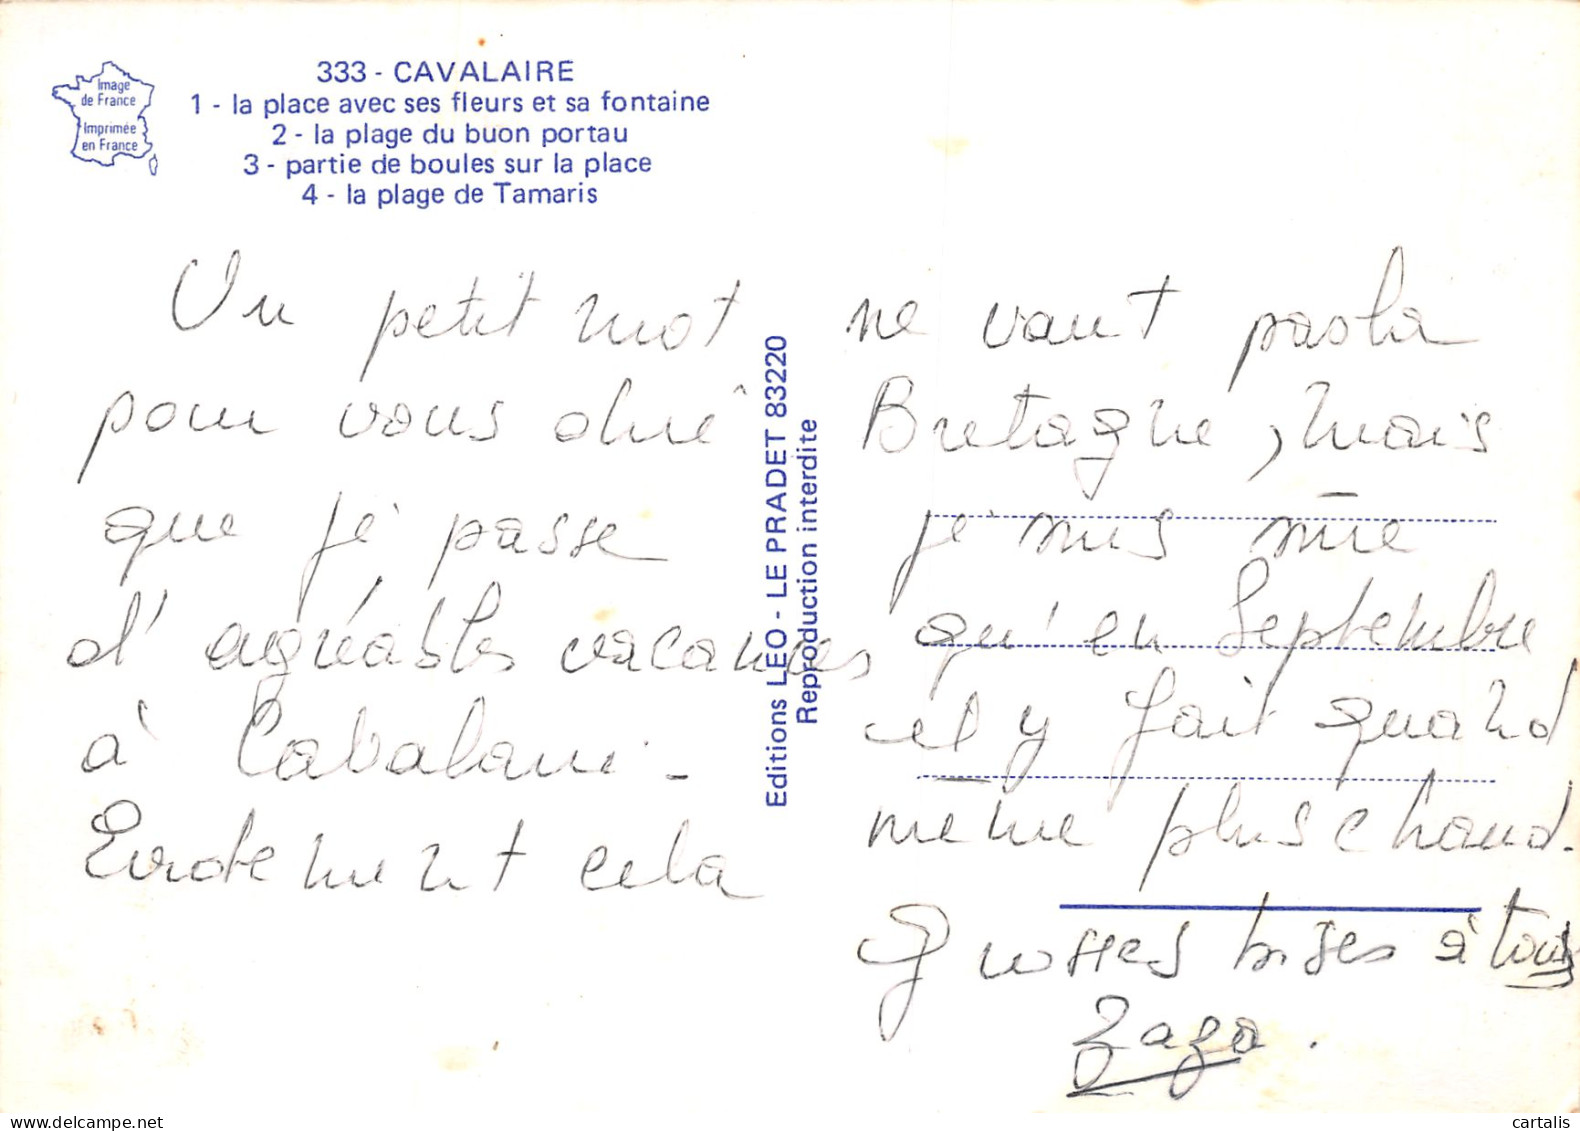 Image
de France
Imprimée
en France
333 - CAVALAIRE
1 - la place avec ses fleurs et sa fontaine
2 - la plage du buon portau
3 - partie de boules sur la place
4 - la plage de Tamaris
Un petit mot
pour vous dire
que je passe
d'agréables vacances
à Cavalaire.
Evidement cela
Editions LEO - LE PRADET 83220
Reproduction interdite
ne vaut pas la
Bretagne, mais
je suis sûre
qu'en Septembre
il y fait quand
même plus chaud.
Grosses bises à tous
Zaza.
cartalis
delcampe.net